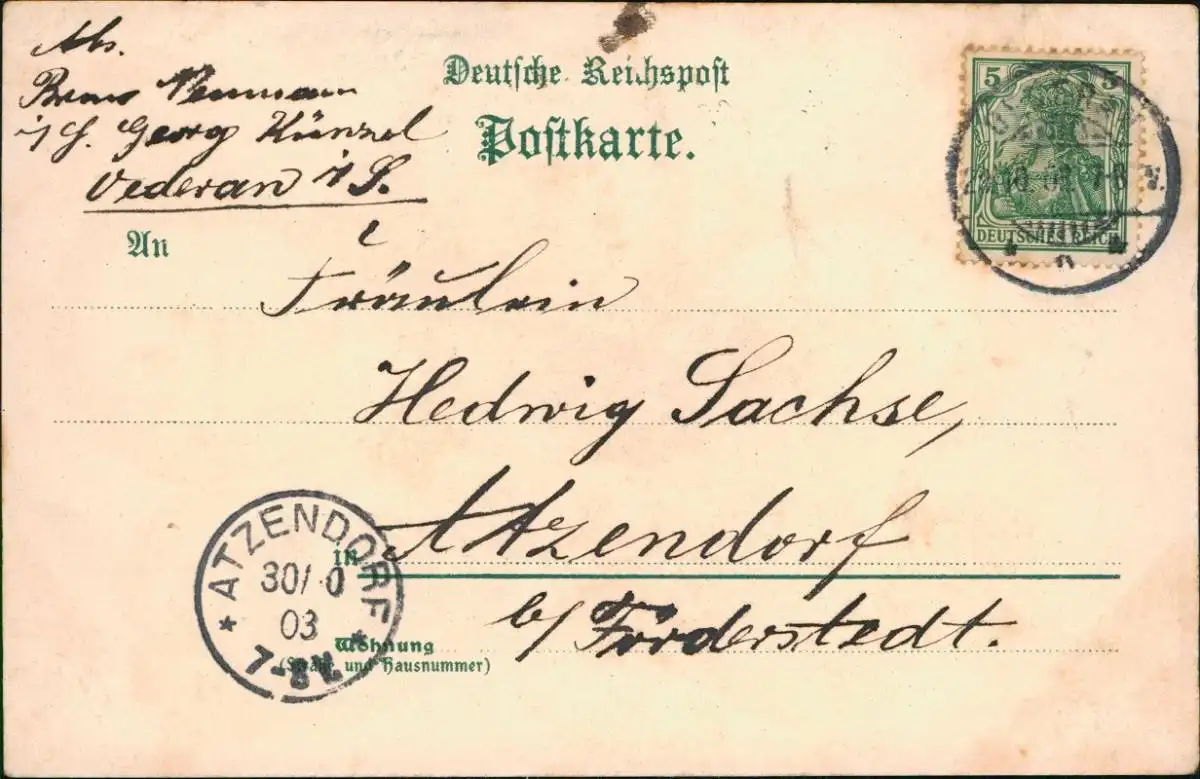 Abs.
Bruno Neumann
i/f. Georg Künzel
Oederan i/S.
Deutsche Reichspost
Postkarte.
5 5
DEUTSCHES REICH
An
Fräulein
Hedwig Sachse,
in Atzendorf
b/ Förderstedt.
ATZENDORF
30/ 0
03
7-8N.
Wohnung
(Straße und Hausnummer)